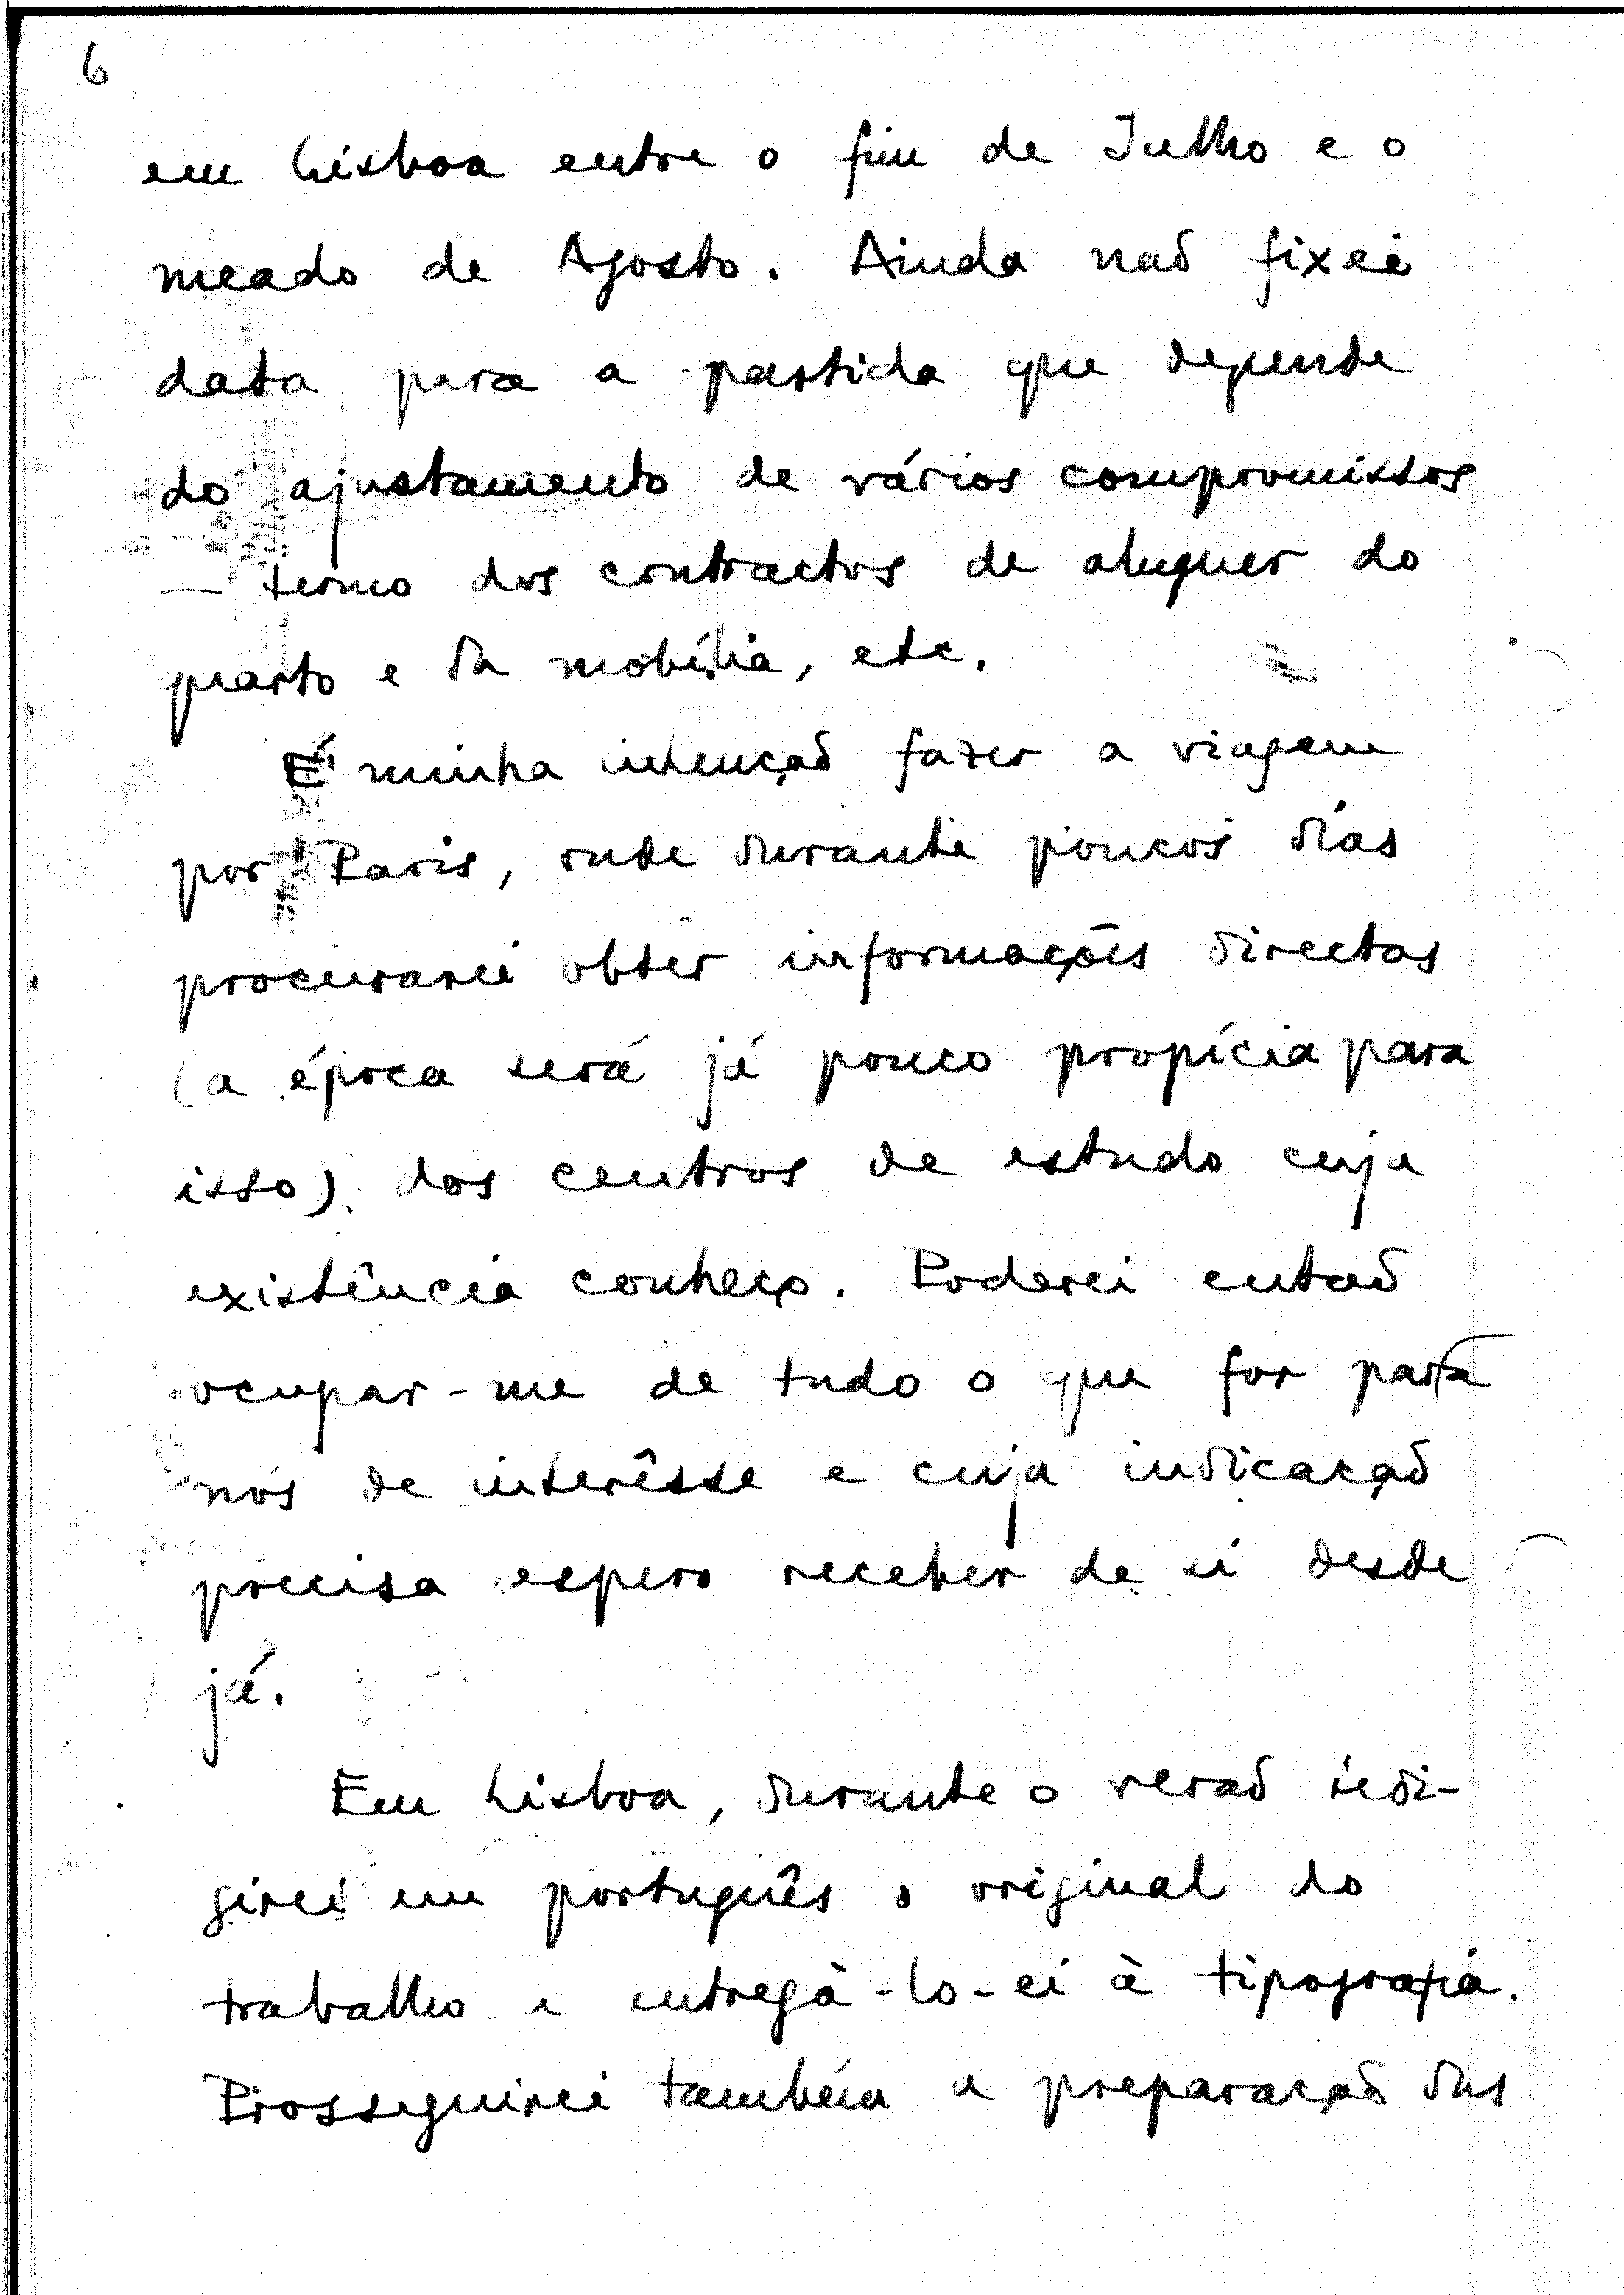 6
em Lisboa entre o fim de Julho e o
meado de Agosto. Ainda não fixei
data para a partida que depende
do ajustamento de vários compromissos
— termo dos contractos de aluguer do
quarto e da mobília, etc.
É minha intenção fazer a viagem
por Paris, onde durante poucos dias
procurarei obter informações directas
(a época será já pouco propícia para
isso) dos centros de estudo cuja
existência conheço. Poderei então
ocupar-me de tudo o que for para
nós de interêsse e cuja indicação
precisa espero receber de si desde
já.
Em Lisboa, durante o verão redi-
girei em português o original do
trabalho e entregà-lo-ei à tipografia.
Prosseguirei também a preparação dos